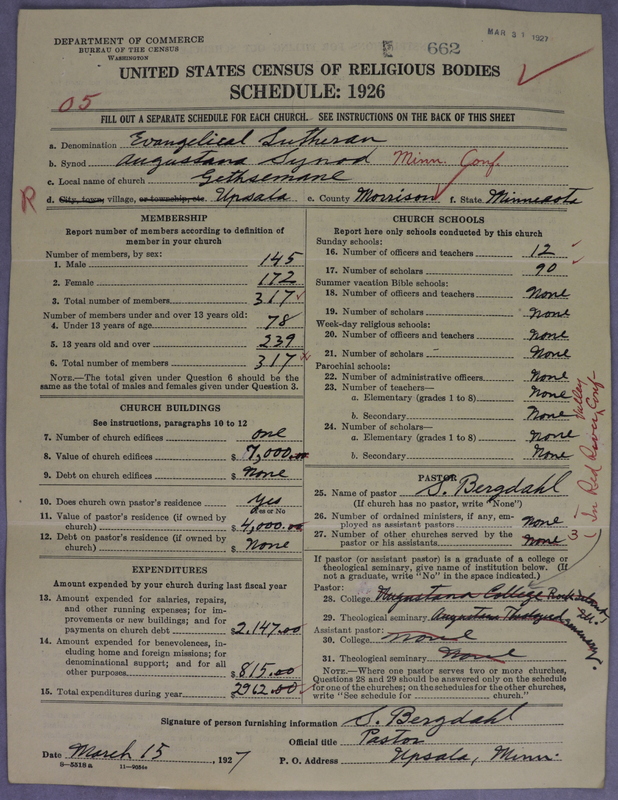 DEPARTMENT OF COMMERCE
BUREAU OF THE CENSUS
WASHINGTON
MAR 31 1927
E 662
UNITED STATES CENSUS OF RELIGIOUS BODIES
SCHEDULE: 1926
05
FILL OUT A SEPARATE SCHEDULE FOR EACH CHURCH. SEE INSTRUCTIONS ON THE BACK OF THIS SHEET
a. Denomination Evangelical Lutheran
b. Synod Augustana Synod Minn. Conf.
c. Local name of church Gethsemane
R d. City, town, village, or township, etc. Upsala e. County Morrison f. State Minnesota
MEMBERSHIP
Report number of members according to definition of
member in your church
Number of members, by sex:
1. Male 145
2. Female 172
3. Total number of members 317
Number of members under and over 13 years old:
4. Under 13 years of age 78
5. 13 years old and over 239
6. Total number of members 317
NOTE.—The total given under Question 6 should be the
same as the total of males and females given under Question 3.
CHURCH BUILDINGS
See instructions, paragraphs 10 to 12
7. Number of church edifices one
8. Value of church edifices $ 7,000.00
9. Debt on church edifices $ None
10. Does church own pastor's residence Yes
Yes or No
11. Value of pastor's residence (if owned by
church) $ 4,000.00
12. Debt on pastor's residence (if owned by
church) $ None
EXPENDITURES
Amount expended by your church during last fiscal year
13. Amount expended for salaries, repairs,
and other running expenses; for im-
provements or new buildings; and for
payments on church debt $ 2,147.00
14. Amount expended for benevolences, in-
cluding home and foreign missions; for
denominational support; and for all
other purposes $ 815.00
15. Total expenditures during year $ 2962.00
CHURCH SCHOOLS
Report here only schools conducted by this church
Sunday schools:
16. Number of officers and teachers 12
17. Number of scholars 90
Summer vacation Bible schools:
18. Number of officers and teachers None
19. Number of scholars None
Week-day religious schools:
20. Number of officers and teachers None
21. Number of scholars None
Parochial schools:
22. Number of administrative officers None
23. Number of teachers—
a. Elementary (grades 1 to 8) None
b. Secondary None
24. Number of scholars—
a. Elementary (grades 1 to 8) None
b. Secondary None
PASTOR
25. Name of pastor S. Bergdahl
(If church has no pastor, write "None")
26. Number of ordained ministers, if any, em-
ployed as assistant pastors None
27. Number of other churches served by the
pastor or his assistants None 3
In Red River Valley Conf.
If pastor (or assistant pastor) is a graduate of a college or
theological seminary, give name of institution below. (If
not a graduate, write "No" in the space indicated.)
Pastor:
28. College Augustana College Rock Island, Ill.
29. Theological seminary Augustana Theological Seminary.
Assistant pastor:
30. College None
31. Theological seminary None
NOTE.—Where one pastor serves two or more churches,
Questions 28 and 29 should be answered only on the schedule
for one of the churches; on the schedules for the other churches,
write "See schedule for church."
Signature of person furnishing information S. Bergdahl
Official title Pastor
Date March 15, 1927 P. O. Address Upsala, Minn.
8-5318 a 11-9684